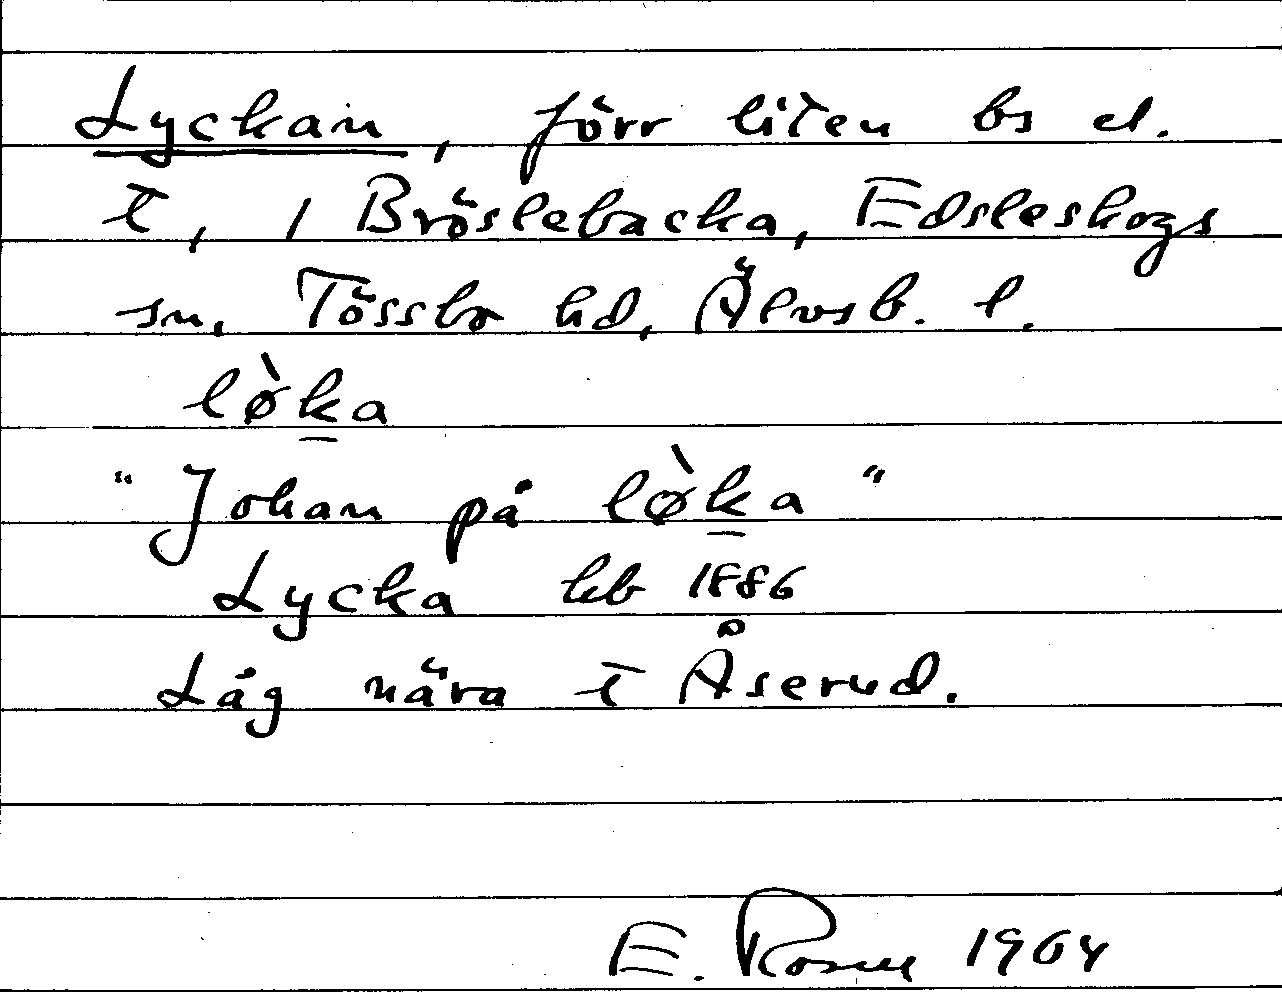 Lyckan, förr liten bs el.
t, i Bröslebacka, Edsleskogs
sn, Tössbo hd, Älvsb. l.
lø̀ka
"Johan på lø̀ka"
Lycka hb 1886
Låg nära t Åserud.
E. Rosell 1964